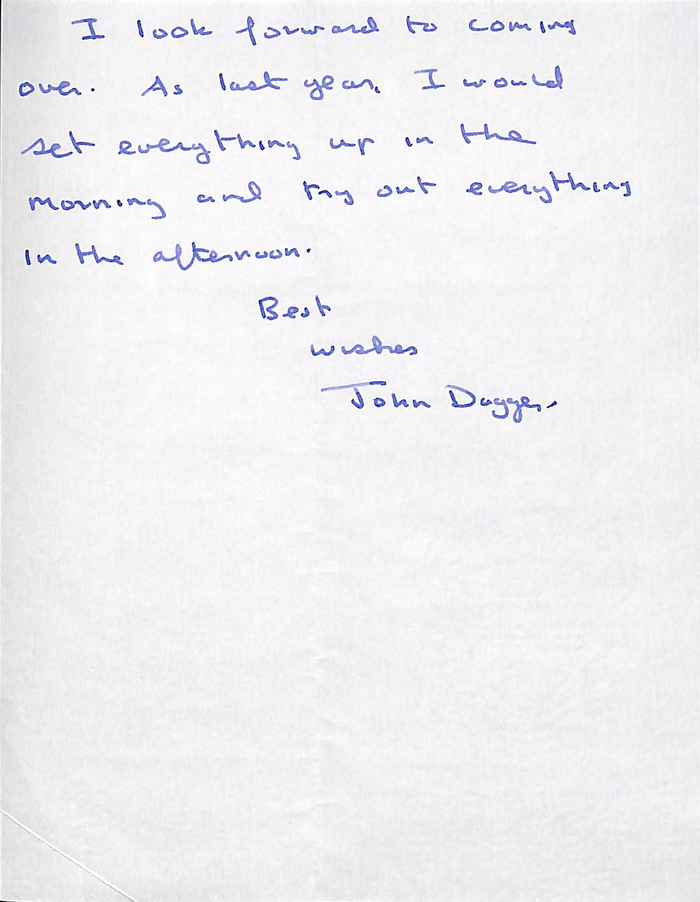 I look forward to coming
over. As last year, I would
set everything up in the
morning and try out everything
in the afternoon.
Best
wishes
John Dugger.